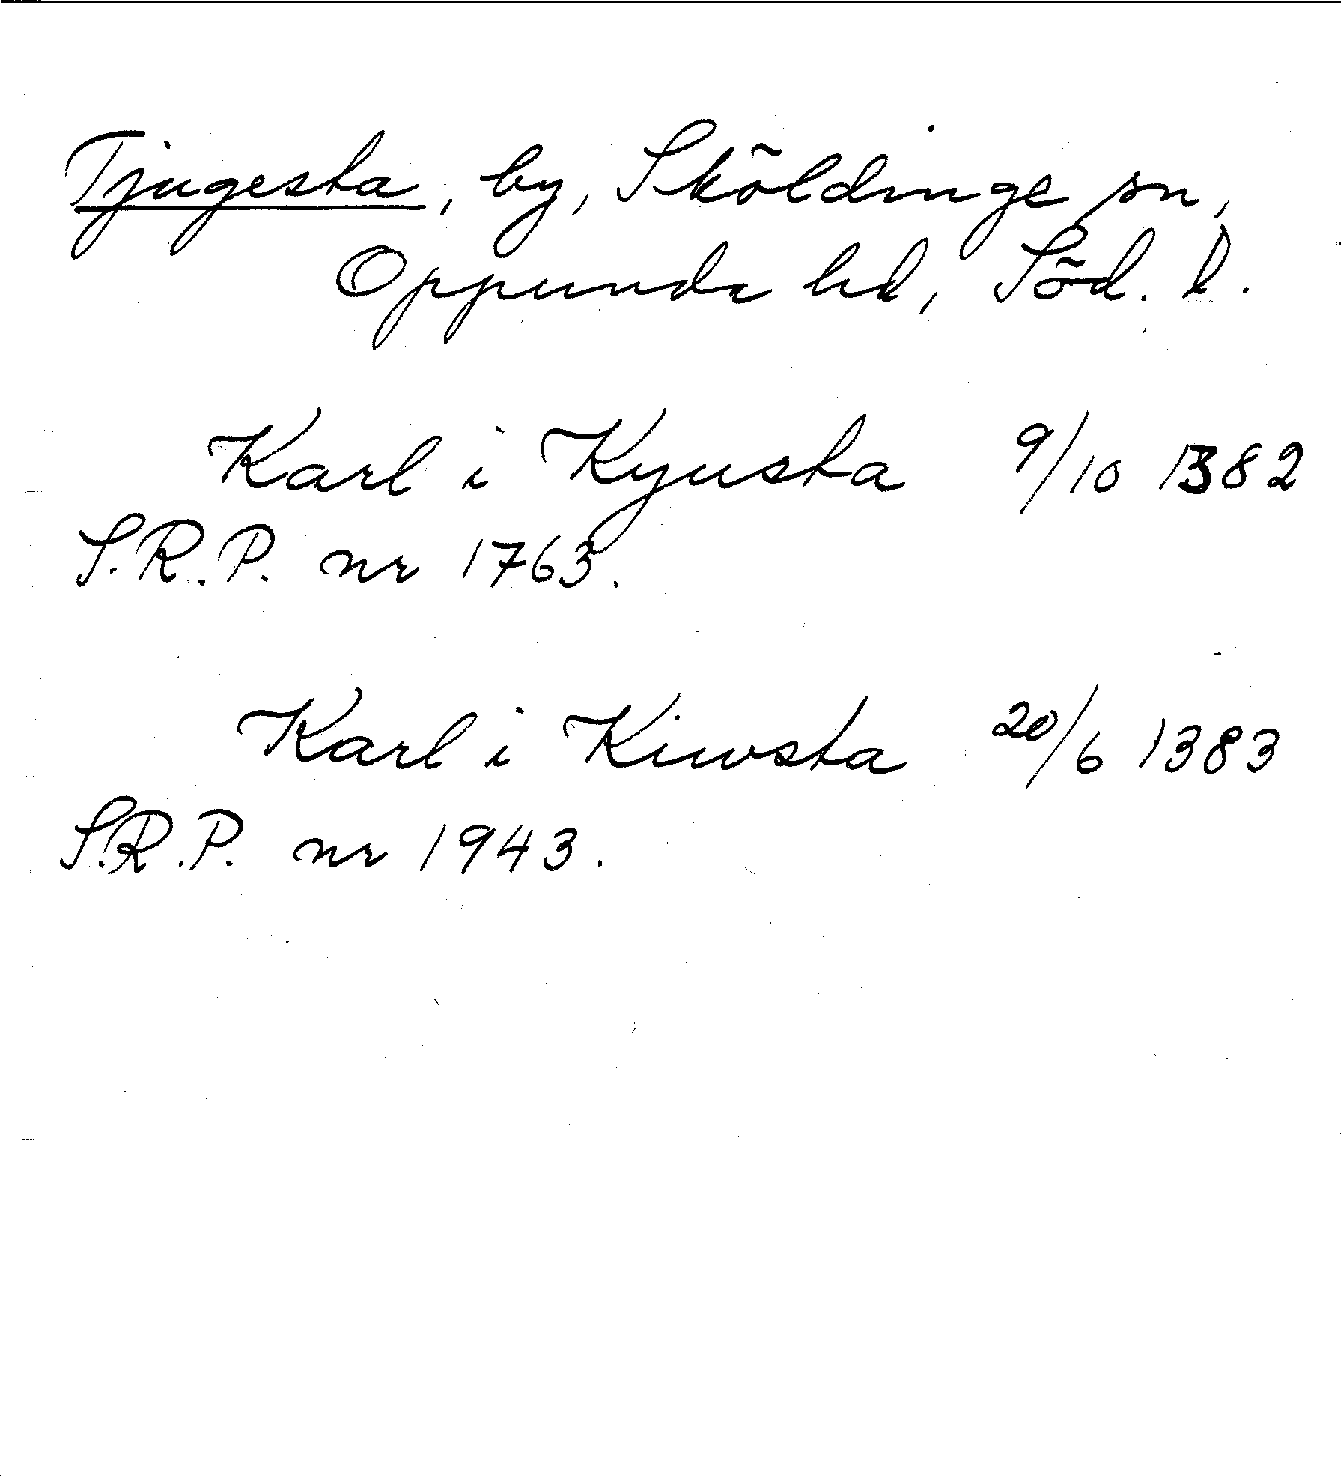 Tjugesta, by, Sköldinge sn,
Oppunda hd, Söd. l.
Karl i Kyusta 9/10 1382
S.R.P. nr 1763.
Karl i Kiwsta 20/6 1383
S.R.P. nr 1943.